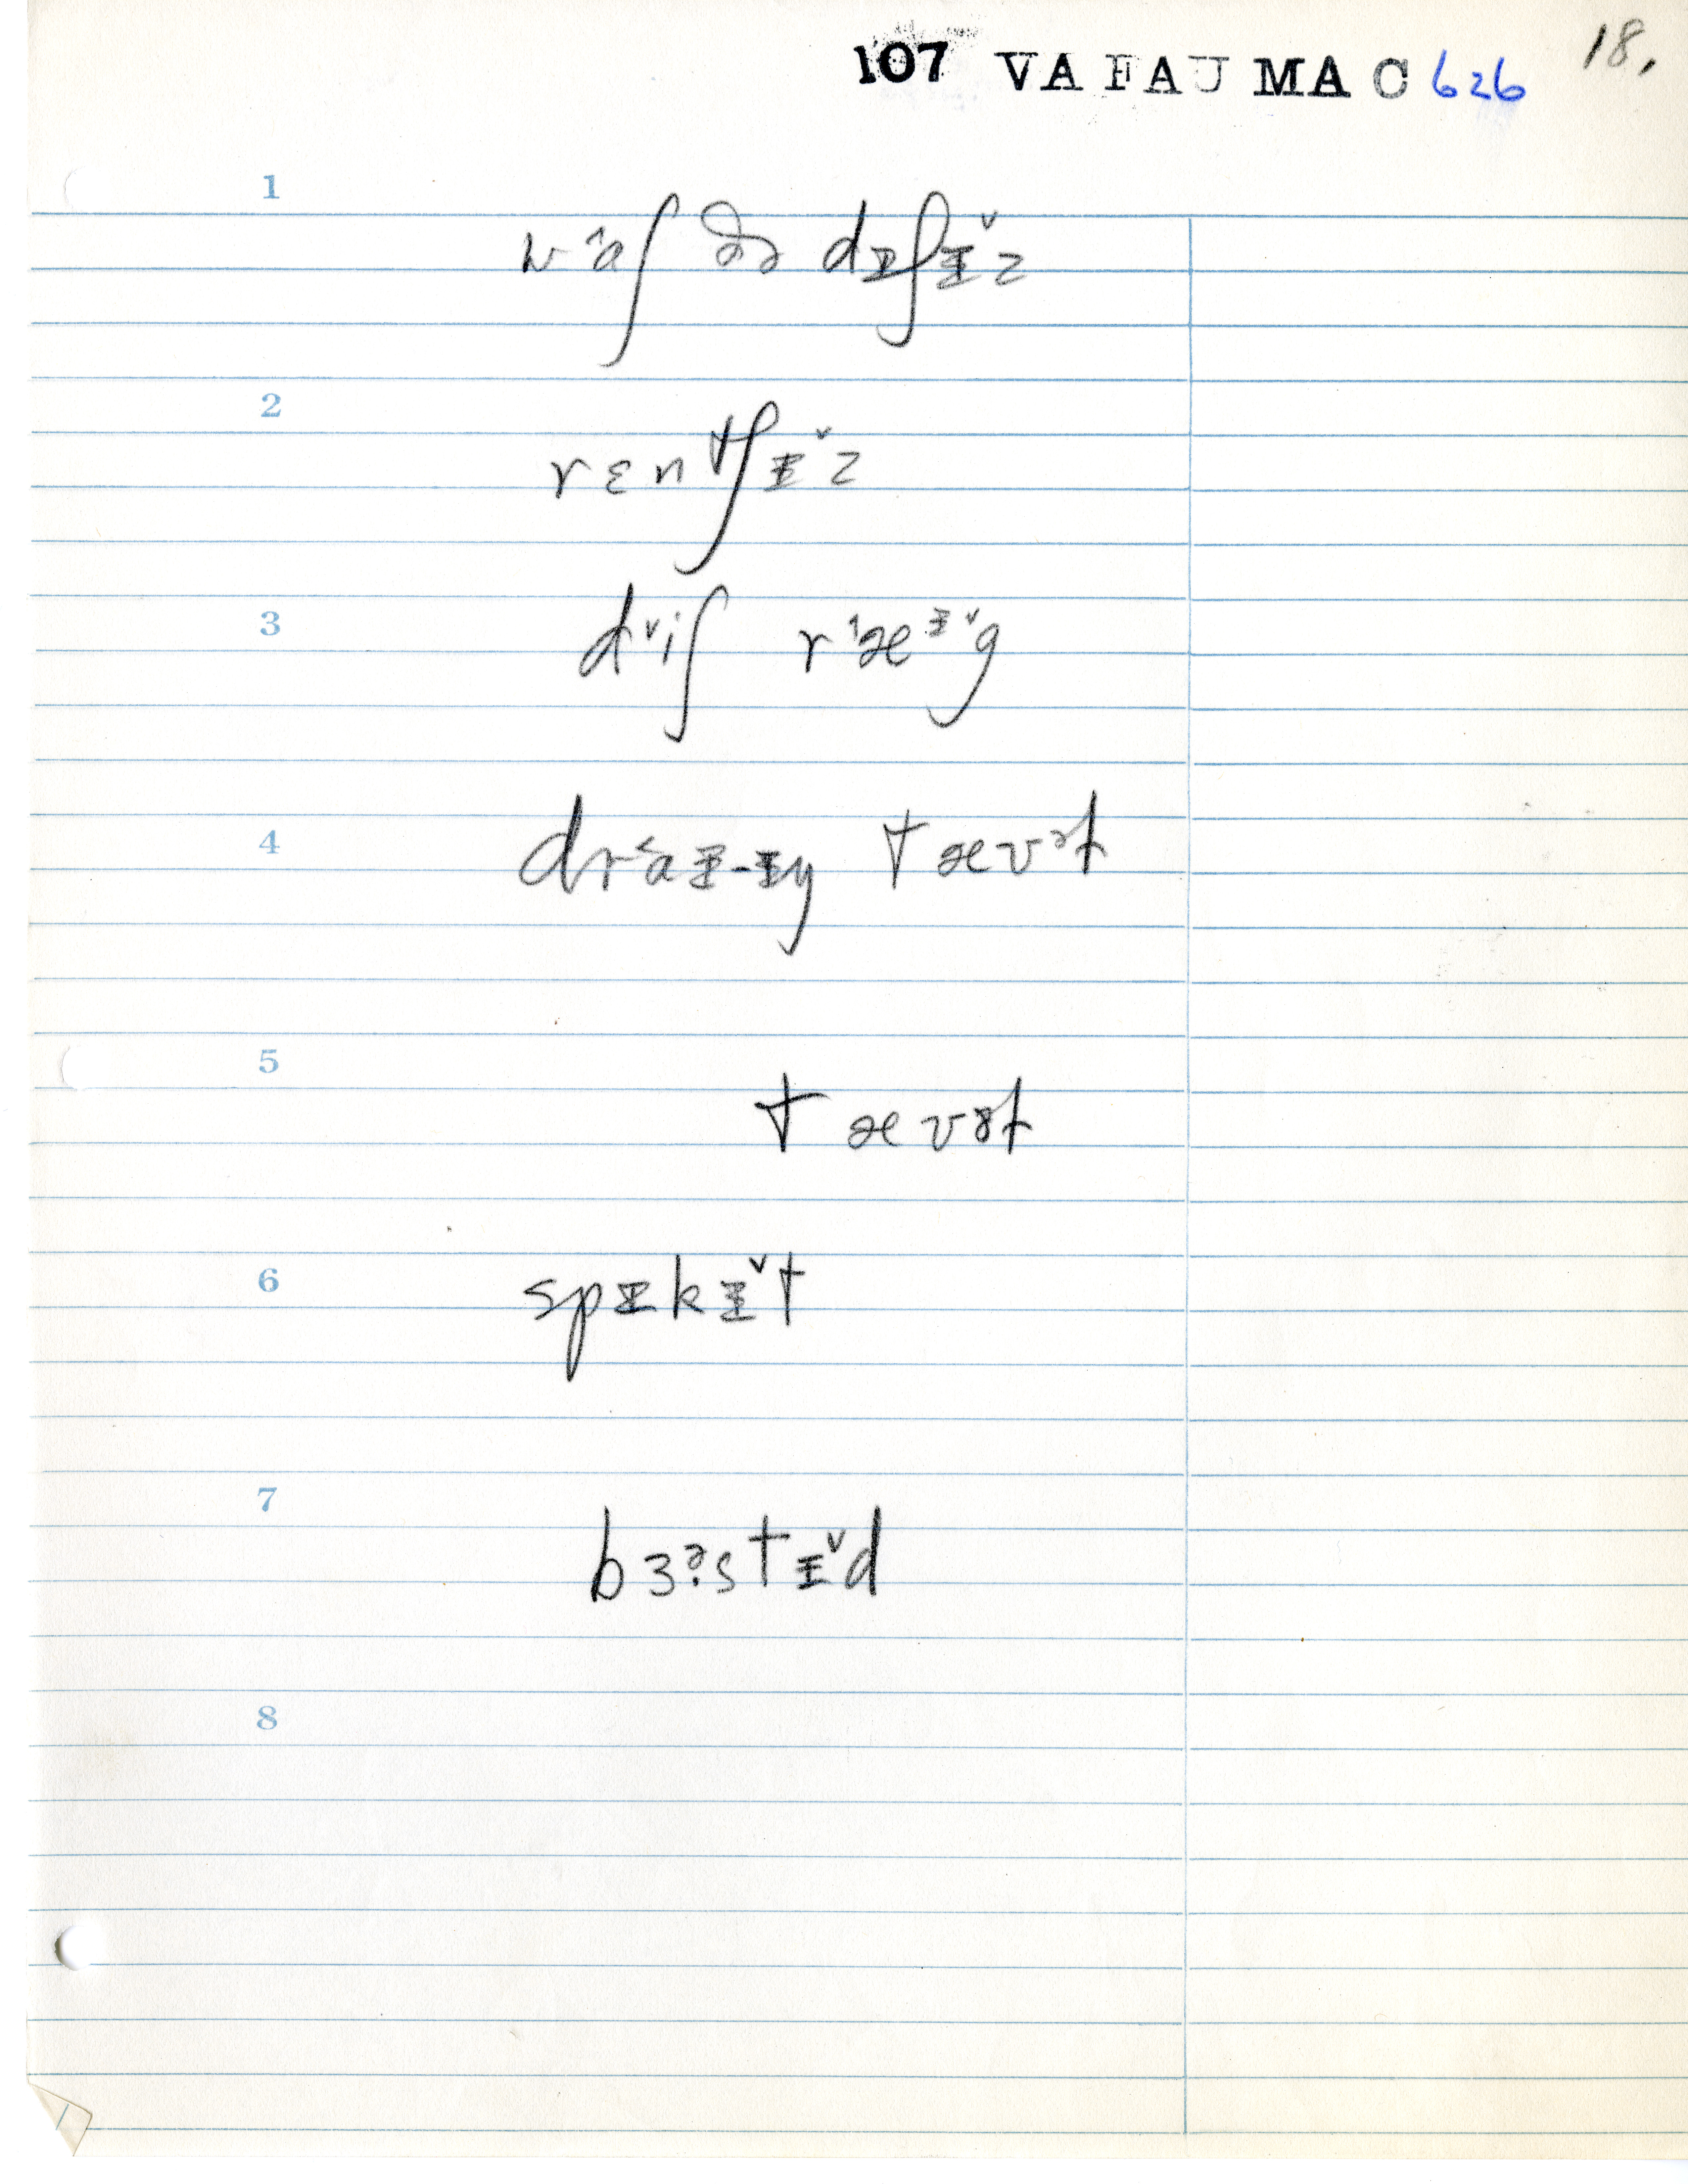 107 VA FAU MAC 626 18.
1
w˄aʃ ðə dɪʃɪ˅z
2
rɛntʃɪ˅z
3
d˅iʃ r˄æɪ˅g
4
dr˂aɪ-ɪŋ tævəɫ
5
tævəɫ
6
spɪkɪ˅t
7
bɜ˞stɪ˅d
8